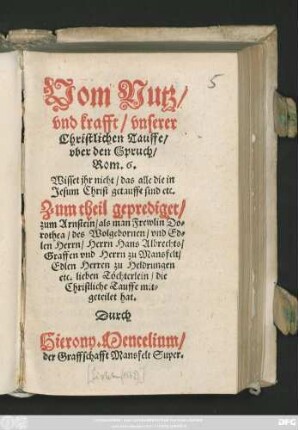 5
Vom Nutz/
vnd krafft/ vnserer
Christlichen Tauffe/
vber den Spruch/
Rom. 6.
Wisset ihr nicht/ das alle die in
Jesum Christ getaufft sind etc.
Zum theil geprediget/
zum Arnstein/ als man Frewlin Do-
rothea/ des Wolgebornen/ vnd Ed-
len Herrn/ Herrn Hans Albrechts/
Graffen vnd Herrn zu Mansfelt/
Edlen Herren zu Heldrungen
etc. lieben Töchterlein/ die
Christliche Tauffe mit-
geteilet hat.
Durch
Hierony. Mencelium/
der Graffschafft Mansfelt Super.